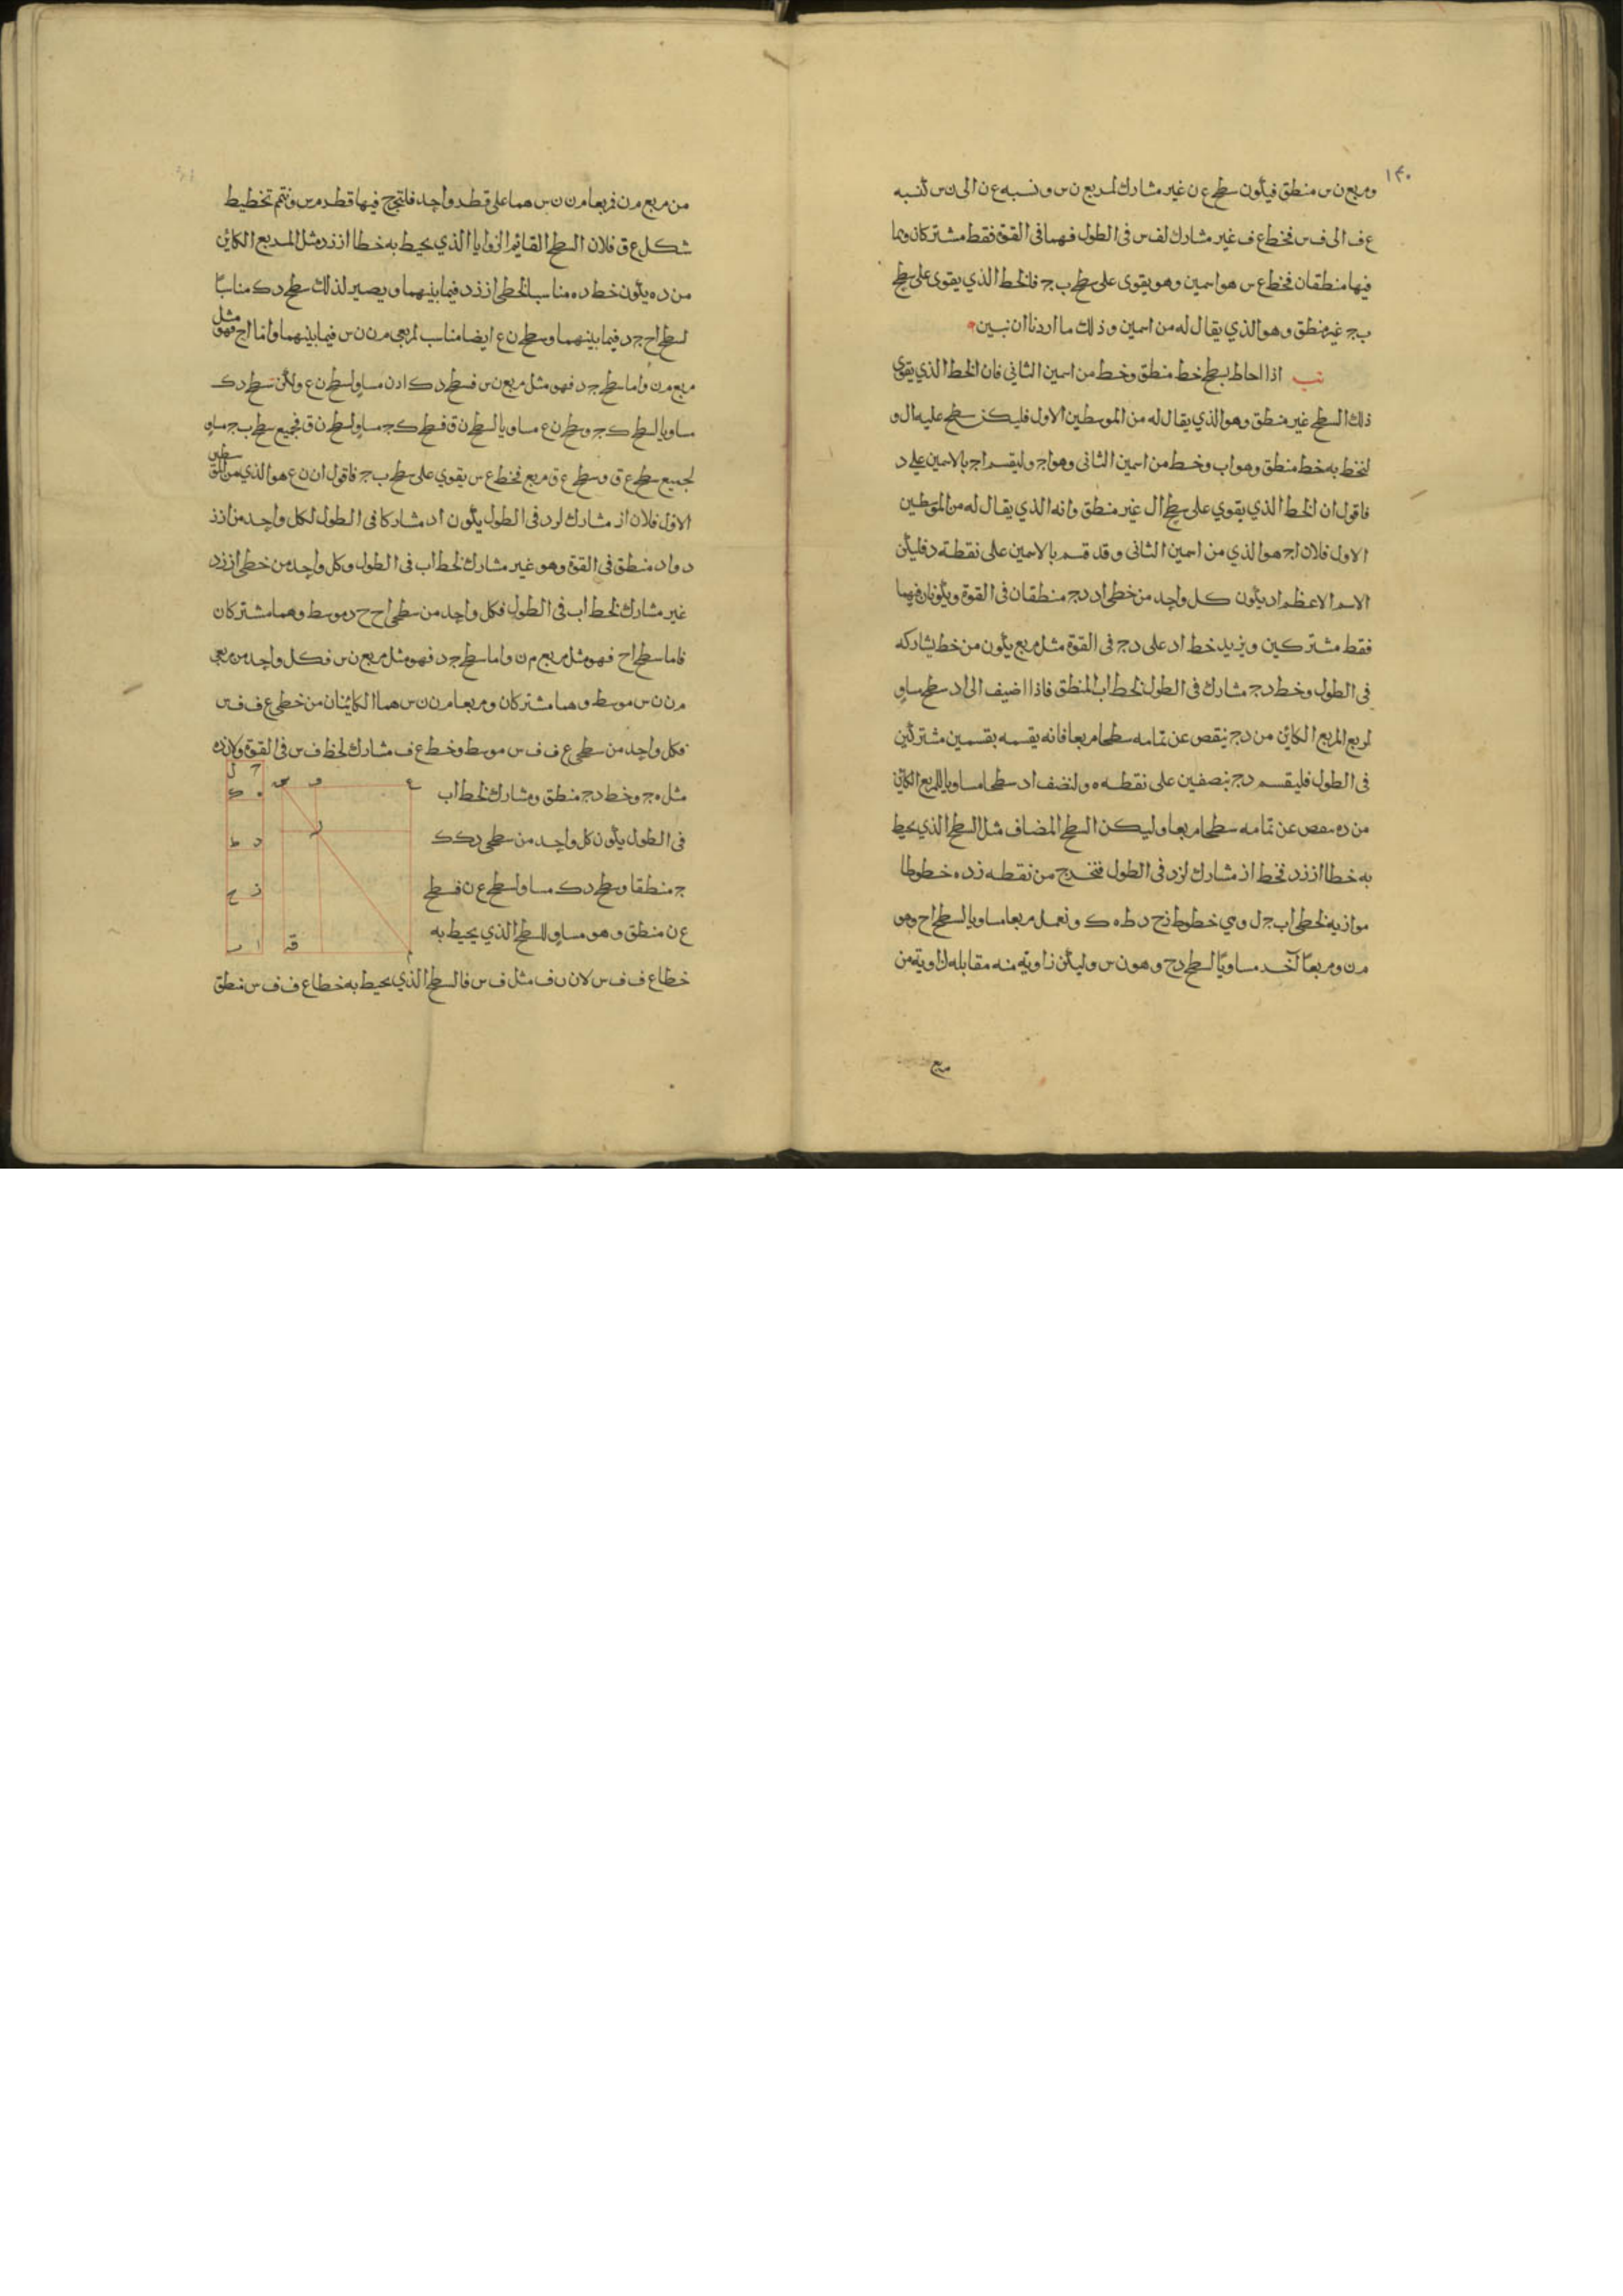 ١٢٠
ومربع ن س منطق فيكون سطح ع ن غير مشارك لمربع ن س ونسبه ع ن الى ن س كنسبه
ع ف الى ف س فخط ع ف غير مشارك لف س فى الطول فهما فى القوة فقط مشتركان وهما
فيها منطقان فخط ع س هو اسمين وهو يقوى على سطح ب ج فالخط الذي يقوى على سطح
ب ج غير منطق وهو الذي يقال له من اسمين وذلك ما اردنا ان نبين
نب اذا احاط بسطح خط منطق وخط من اسمين الثاني فان الخط الذي يقوى
ذلك السطح غير منطق وهو الذي يقال له من الموسطين الاول فليكن سطح عليه ال و
لنخط به خط منطق وهو اب وخط من اسمين الثانى وهو اج وليقسم اج بالاسمين على د
فاقول ان الخط الذي يقوي على سطح ال غير منطق وانه الذي يقال له من الموسطين
الاول فلان اج هو الذي من اسمين الثانى وقد قسم بالاسمين على نقطة د فليكن
الاسم الاعظم اد يكون كل واحد من خطى اد دج منطقان فى القوة ويكونان فيها
فقط مشتركين ويزيد خط اد على دج فى القوة مثل مربع يكون من خط يشاركه
فى الطول وخط دج مشارك فى الطول لخط اب المنطق فاذا اضيف الى اد سطح مساو
لربع المربع الكائن من دج ينقص عن تمامه سطحا مربعا فانه يقسمه بقسمين مشتركين
فى الطول فليقسم دج بنصفين على نقطه ه ولنضف اد سطحا مساويا للمربع الكائن
من ده ىىقص عن تمامه سطحا مربعا وليكن السطح المضاف مثل السطح الذي يحيط
به خطا از زد فخط از مشارك لزد فى الطول فنخرج من نقطه ز د ه خطوطا
موازيه لخطى اب ج ل وهي خطوط زح د ط ه ك ونعمل مربعا مساويا لسطح اح وهو
م ن ومربعًا آخر مساويًا لسطح دج وهو ن س وليكن زاويته منه مقابله لزاوية من
مربع
من مربع م ن فمربعا م ن ن س هما على قطر واحد فلنخرج فيها قطر م س ونتم تخطيط
شكل ع ق فلان السطح القائم الزوايا الذي يحيط به خطا از زد مثل المربع الكائن
من ده يكون خط ده مناسبا لخطى از زد فيما بينهما ويصير لذلك سطح د ك مناسبًا
لسطح اح ج د فيما بينهما وسطح ن ع ايضا مناسب لمربعى م ن ن س فيما بينهما واما اح فهو مثل
مربع م ن واما سطح ج د فهو مثل مربع ن س فسطح د ك اذن مساو لسطح ن ع ولكن سطح د ك
مساويا لسطح ك ج وسطح ن ع مساويا لسطح ن ق فسطح ك ج مساو لسطح ن ق فجميع سطح ب ج مساو
لجميع سطح ع ق وسطح ع ق مربع فخط ع س يقوي على سطح ب ج فاقول ان ن ع هو الذي من
الاول فلان از مشارك لزد فى الطول يكون اد مشاركا فى الطول لكل واحد من از ز
د و اد منطق فى القوة وهو غير مشارك لخط اب فى الطول وكل واحد من خطى از زد
غير مشارك لخط اب فى الطول فكل واحد من سطحى اح ح د موسط وهما مشتركان
فاما سطح اح فهو مثل مربع م ن واما سطح ج د فهو مثل مربع ن س فكل واحد من مربعى
م ن ن س موسط وهما مشتركان ومربعا م ن ن س هما الكائنان من خطى ع ف ف س
فكل واحد من سطحى ع ف ف س موسط وخط ع ف مشارك لخط ف س فى القوة ولان ده
مثل ه ج وخط دج منطق ومشارك لخط اب
فى الطول يكون كل واحد من سطحى د ك ك
ج منطقا وسطح د ك مساو لسطح ع ن فسطح
ع ن منطق وهو مساو للسطح الذي يحيط به
خطا ع ف ف س لان ن ف مثل ف س فالسطح الذي يحيط به خطا ع ف ف س منطق